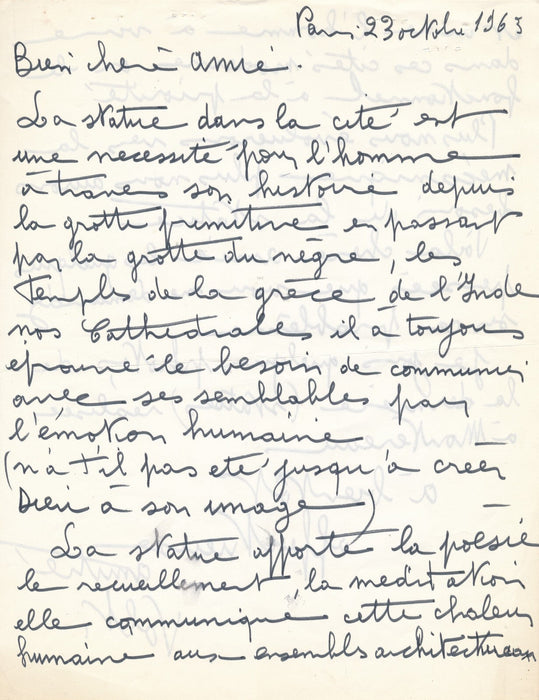 Paris 23 octobre 1963
Bien chere amie.
La statue dans la cité est
une necessité pour l'homme
à travers son histoire depuis
la grotte primitive en passant
par la grotte du nègre, les
Temples de la grèce de l'Inde
nos Cathedrales il à toujours
éprouvé le besoin de communier
avec ses semblables par
l'émotion humaine
(n'à t'il pas eté jusqu'à créer
Dieu à son image)
La statue apporte la poesie
le recueillement, la meditation
elle communique cette chaleur
humaine aux ensembls architecturaux